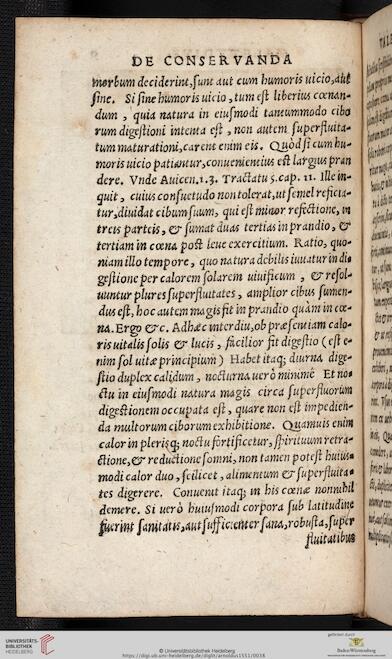 DE CONSERVANDA
morbum deciderint, sunt aut cum humoris uicio, aut
sine. Si sine humoris uicio, tum est liberius cœnan-
dum, quia natura in eiusmodi tantummodo cibo
rum digestioni intenta est, non autem superfluita-
tum maturationi, carent enim eis. Quòd si cum hu-
moris uicio patiantur, conuenientius est largius pran
dere. Vnde Auicen. 1.3. Tractatu 5. cap. 11. Ille in-
quit, cuius consuetudo non tolerat, ut semel reficia-
tur, diuidat cibum suum, qui est minor refectione, in
treis parteis, & sumat duas tertias in prandio, &
tertiam in cœna post leue exercitium. Ratio, quo-
niam illo tempore, quo natura debilis iuuatur in di-
gestione per calorem solarem uiuificum, & resol-
uuntur plures superfluitates, amplior cibus sumen-
dus est, hoc autem magis fit in prandio quàm in cœ-
na. Ergo &c. Adhæc interdiu, ob præsentiam calo-
ris uitalis solis & lucis, facilior fit digestio (est e-
nim sol uitæ principium) Habet itaq; diurna dige-
stio duplex calidum, nocturna uerò minimè Et no-
ctu in eiusmodi natura magis circa superfluorum
digestionem occupata est, quare non est impedien-
da multorum ciborum exhibitione. Quamuis enim
calor in plerisq; noctu fortificetur, spirituum retra-
ctione, & reductione somni, non tamen potest huius-
modi calor duo, scilicet, alimentum & superfluita-
tes digerere. Conuenit itaq; in his cœnæ nonnihil
demere. Si uerò huiusmodi corpora sub latitudine
fuerint sanitatis, aut sufficienter sana, robusta, super
fluitatibus
UNIVERSITÄTS-
BIBLIOTHEK
HEIDELBERG
© Universitätsbibliothek Heidelberg
https://digi.ub.uni-heidelberg.de/diglit/arnoldus1551/0038
gefördert durch
Baden-Württemberg